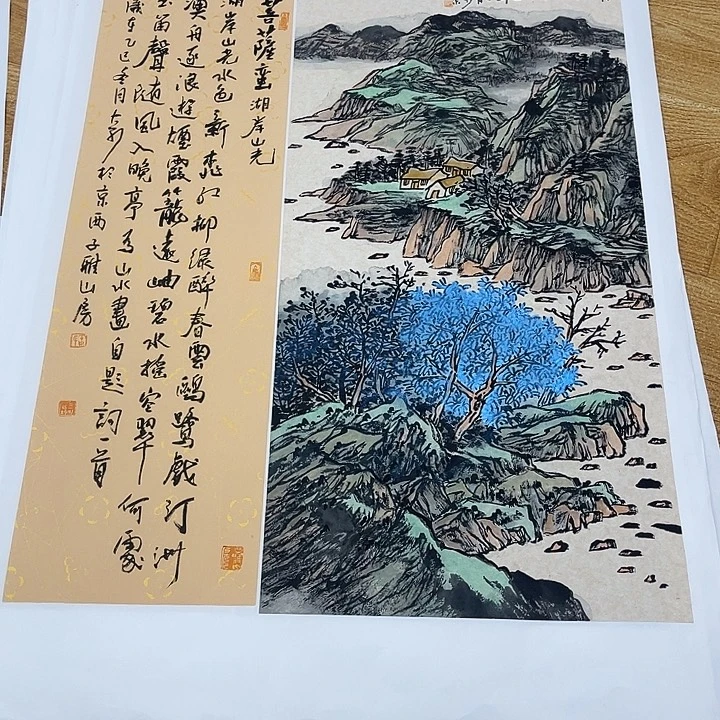 菩薩蠻 湖岸山光
湖岸山光水色新桃红柳緑醉春雲鷗鷺戲汀洲
漁舟逐浪遊煙霞籠遠岫碧水摇空翠何處
笛聲随風入晚亭為山水畫自題詞一首
歲在乙巳冬月於京西子雅山房